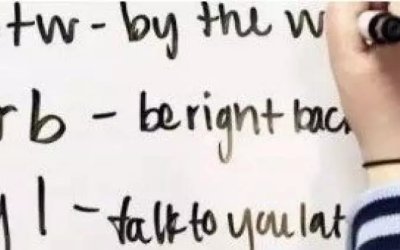 tw - by the w
rb - be right bac
l - talk to you lat